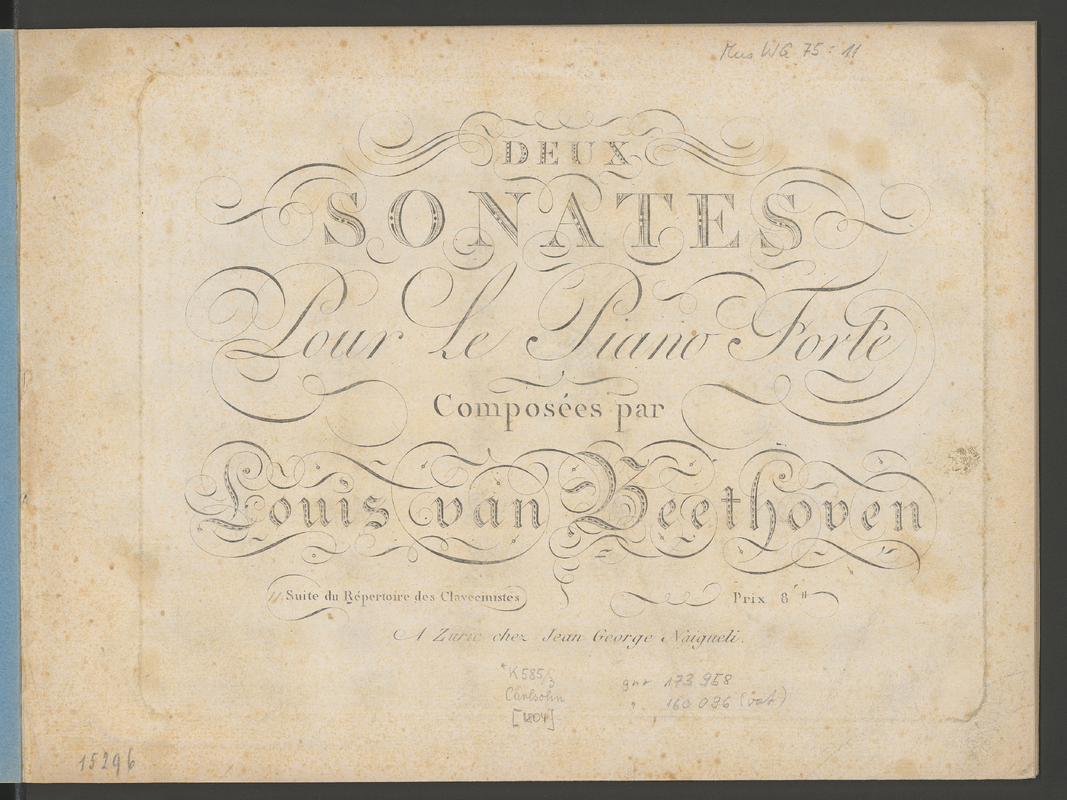 Mus WG 75 : 11
DEUX
SONATES
Pour Le Piano Forte
Composées par
Louis van Beethoven
11. Suite du Répertoire des Clavecinistes
Prix 8
A Zuric chez Jean George Naigueli.
K 585/3
Carlsohn
[1804]
173 958
160 036 (vat)
15296